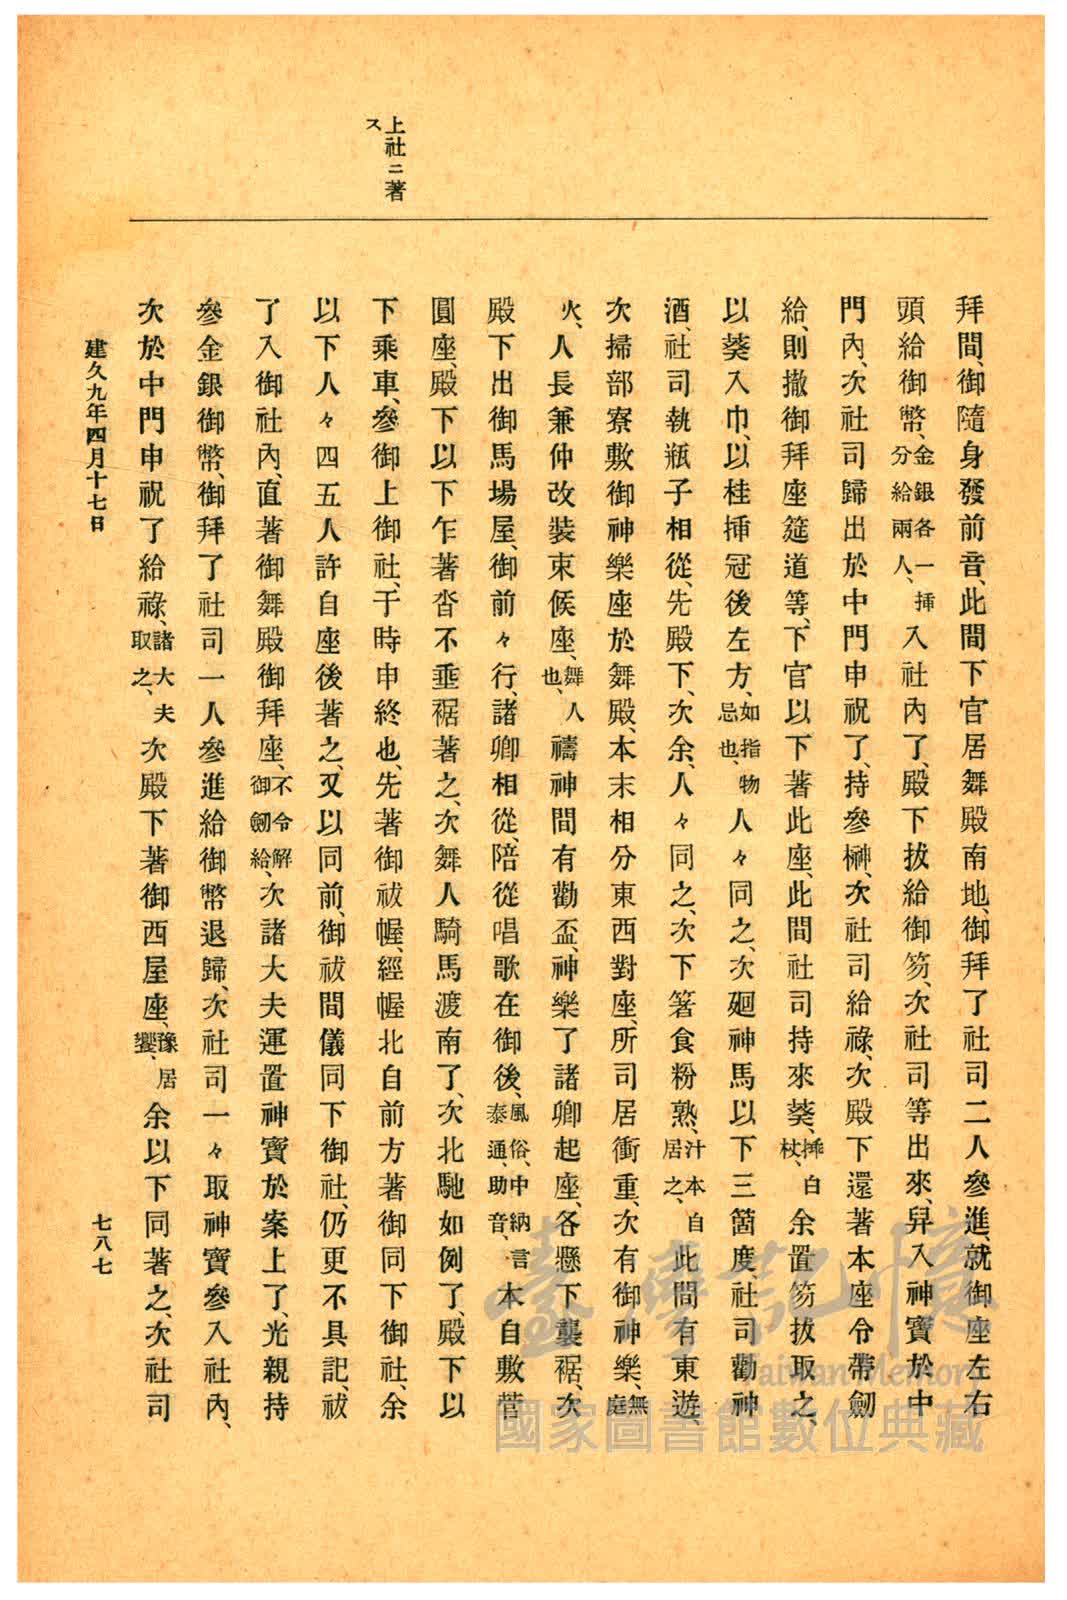 上社ニ著
ス
拜間、御隨身發前音、此間下官居舞殿南地、御拜了社司二人參進、就御座左右
頭給御幣、金銀各一捧分給兩人、入社內了、殿下拔給御笏、次社司等出來、舁入神寶於中
門內、次社司歸出於中門申祝了、持參榊、次社司給祿、次殿下還著本座令帶劒
給、則撤御拜座筵道等、下官以下著此座、此間社司持來葵、捧白杖、余置笏拔取之、
以葵入巾、以桂揷冠後左方、如指物忌也、人々同之、次廻神馬以下三箇度、社司勸神
酒、社司執瓶子相從、先殿下、次余、人々同之、次下箸食粉熟、汁本自居之、此間有東遊、
次掃部寮敷御神樂座於舞殿、本末相分東西對座、所司居衝重、次有御神樂、無庭
火、人長兼仲改裝束候座、舞人也、禱神間有勸盃、神樂了諸卿起座、各懸下襲裾、次
殿下出御馬場屋、御前々行、諸卿相從、陪從唱歌在御後、風俗、中納言泰通、助音、本自敷菅
圓座、殿下以下乍著沓不垂裾著之、次舞人騎馬渡南了、次北馳如例了、殿下以
下乘車、參御上御社、于時申終也、先著御祓幄、經幄北自前方著御同下御社、余
以下人々四五人許自座後著之、又以同前、御祓間儀同下御社、仍更不具記、祓
了入御社內、直著御舞殿御拜座、不令解御劒給、次諸大夫運置神寶於案上了、光親持
參金銀御幣、御拜了社司一人參進給御幣退歸、次社司一々取神寶參入社內、
次於中門申祝了給祿、諸大夫取之、次殿下著御西屋座、豫居饗、余以下同著之、次社司
建久九年四月十七日
七八七
臺灣記憶
Taiwan Memory
國家圖書館數位典藏